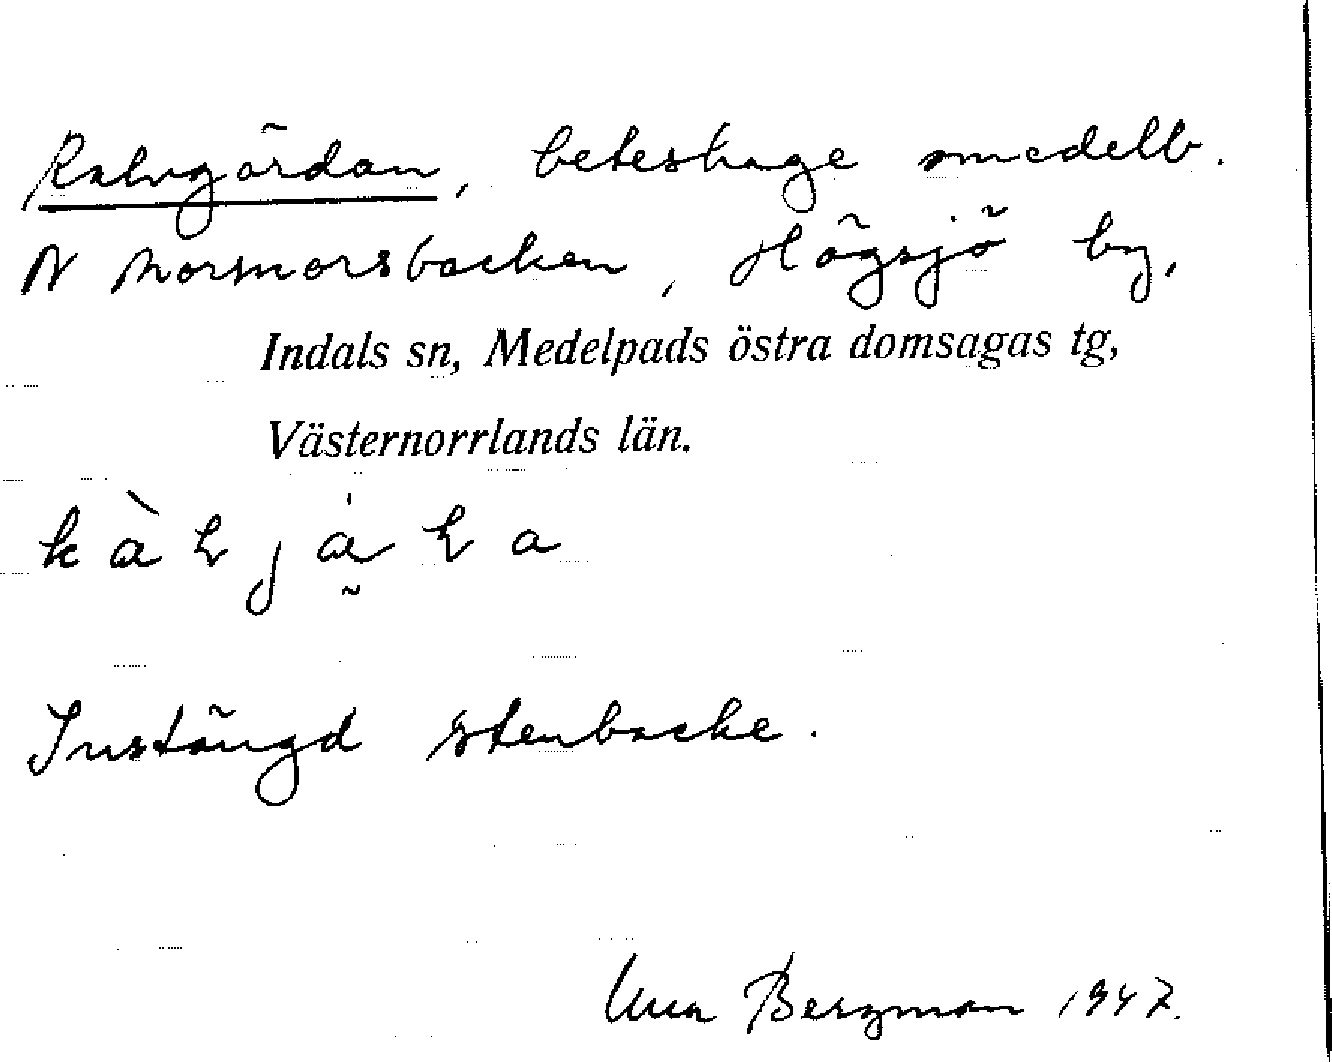 Kalvgärdan, beteshage omedelb.
N Mormorsbacken, Högsjö by,
Indals sn, Medelpads östra domsagas tg,
Västernorrlands län.
Instängd stenbacke.
Bergman 1947.